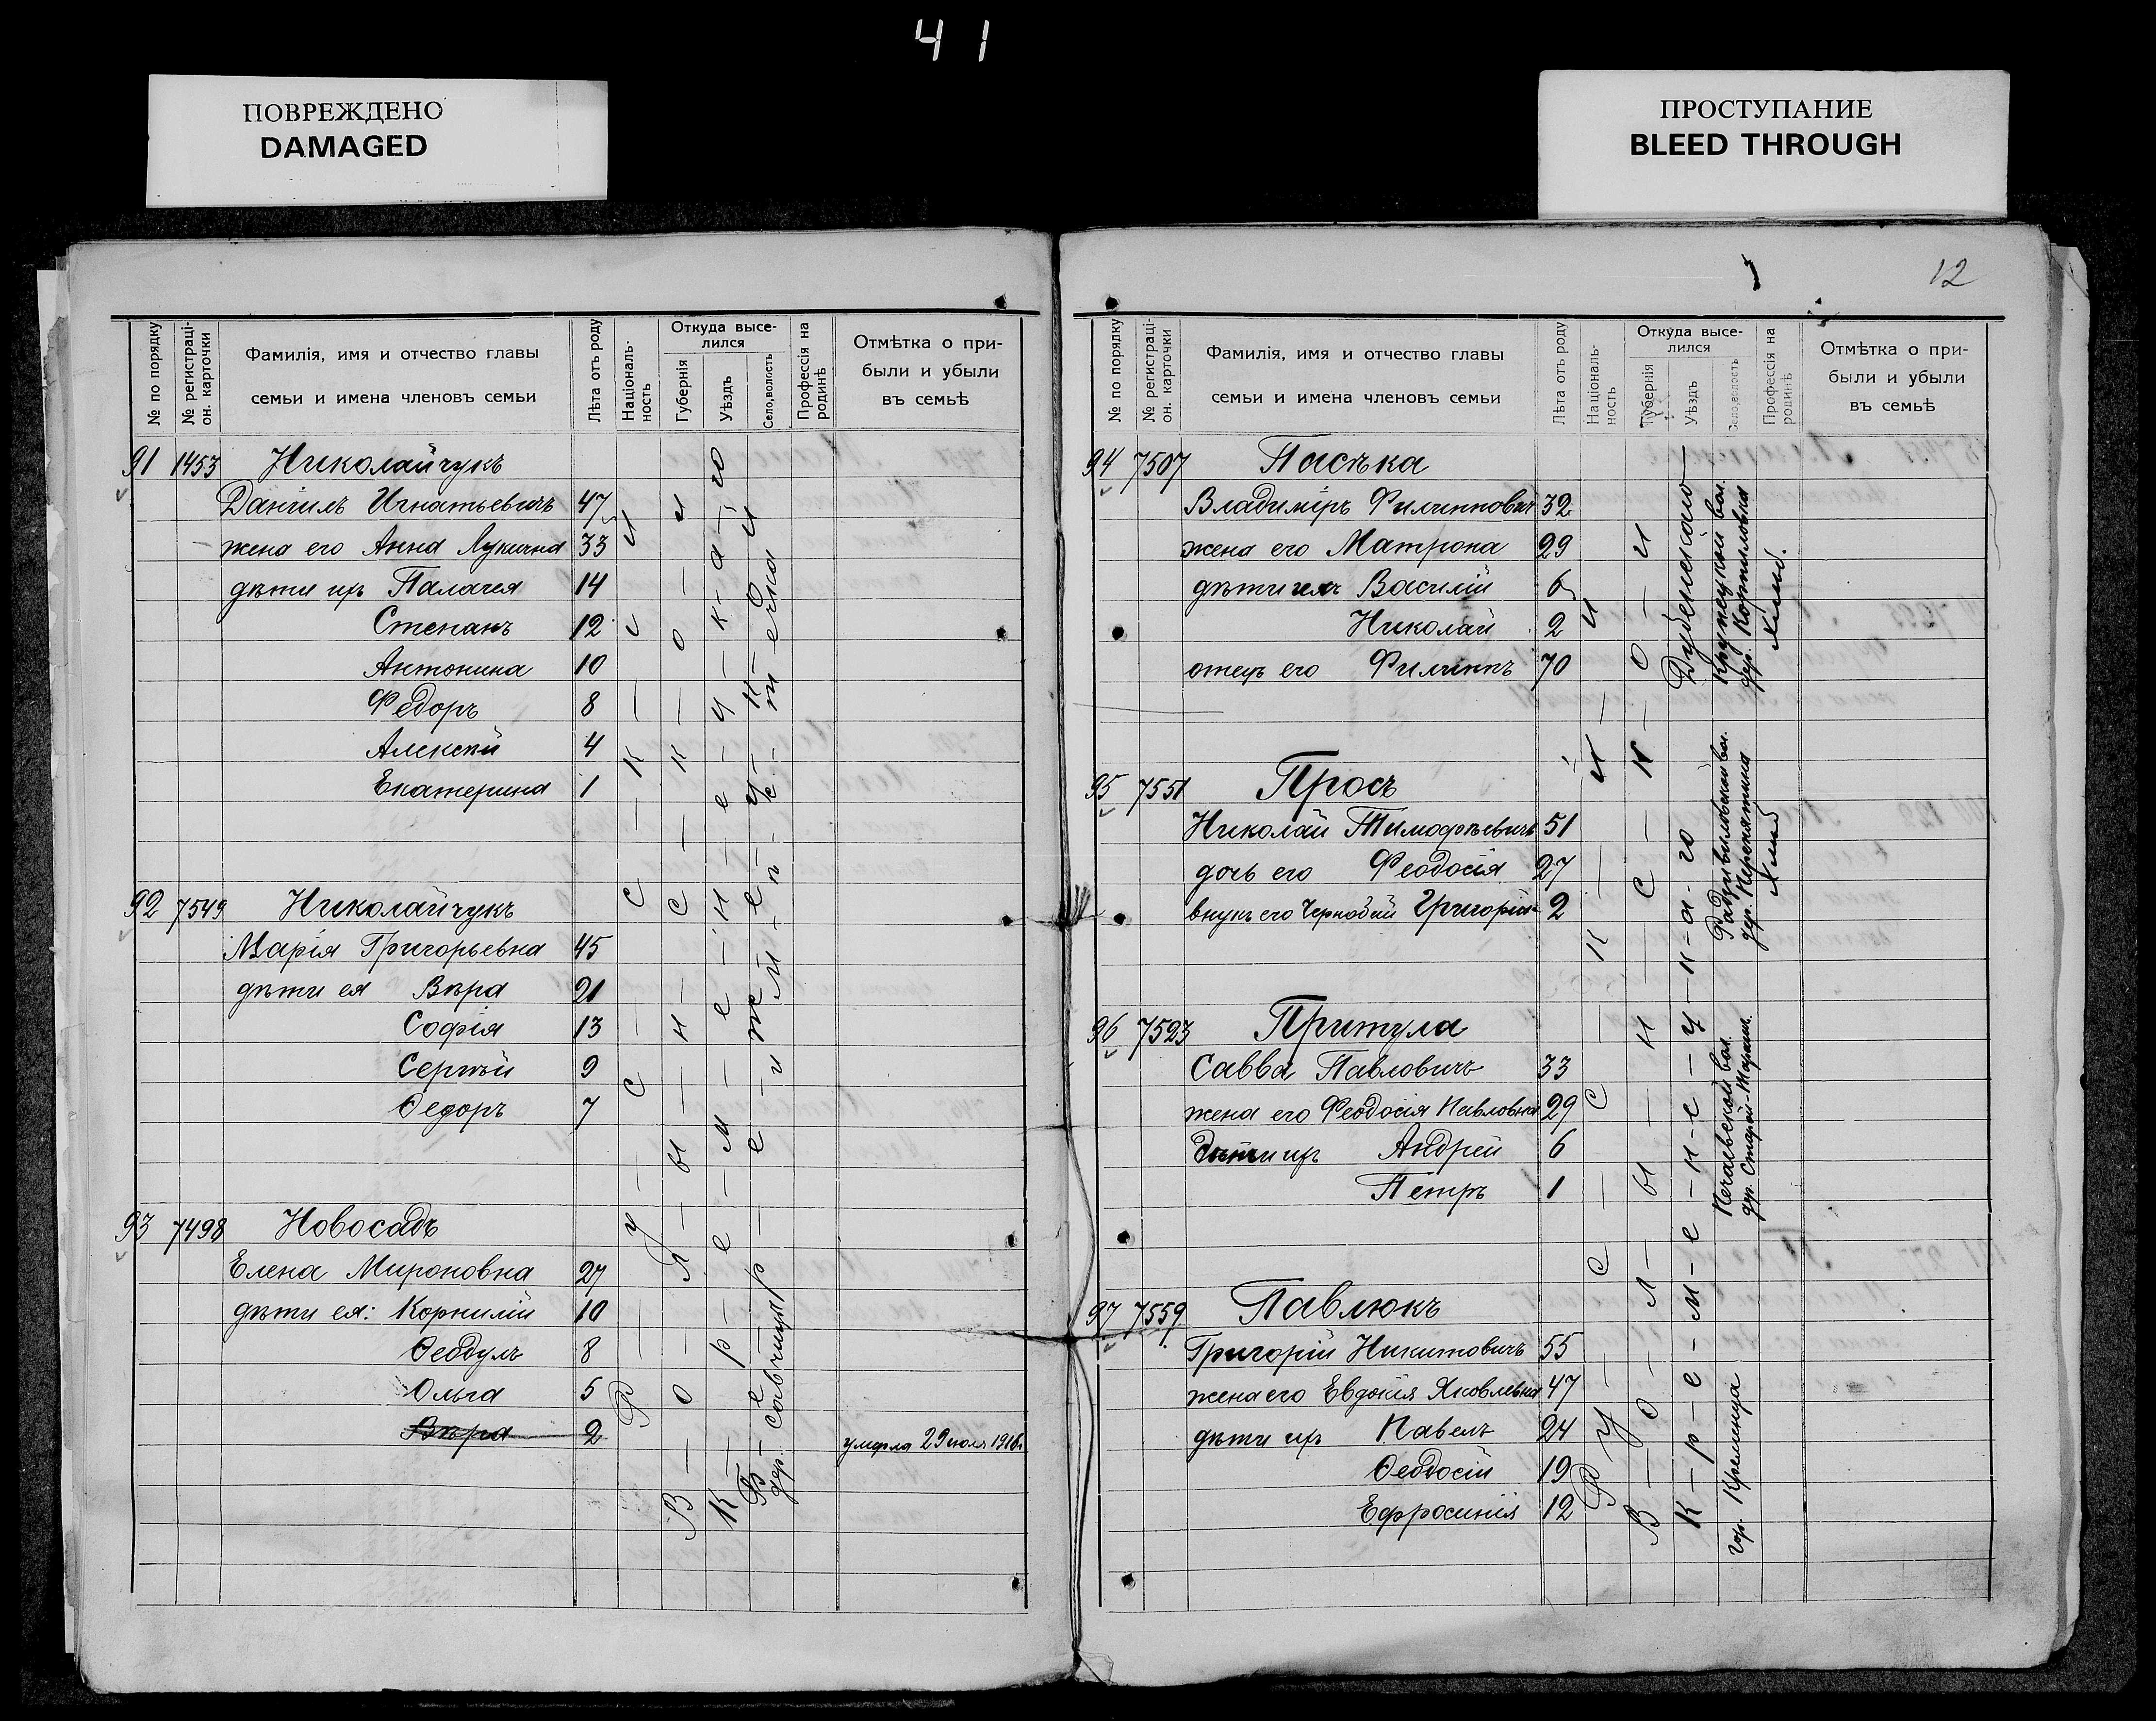 41
ПОВРЕЖДЕНО
DAMAGED
ПРОСТУПАНИЕ
BLEED THROUGH
№ по порядку
№ регистраці-
он. карточки
Фамилія, имя и отчество главы
семьи и имена членовъ семьи
Лѣта отъ роду
Національ-
ность
Откуда высе-
лился
Губернія
Уѣздъ
Село, волость
Профессія на
родинѣ
Отмѣтка о при-
были и убыли
въ семьѣ
91 1453 Николайчукъ
Даніилъ Игнатьевичъ 47
жена его Анна Лукична 33
дѣти ихъ Палагея 14
Степанъ 12
Антонина 10
Федоръ 8
Алексѣй 4
Екатерина 1
92 7549 Николайчукъ
Марія Григорьевна 45
дѣти ея Вѣра 21
Софія 13
Сергѣй 9
Ѳедоръ 7
93 7498 Новосадъ
Елена Мироновна 27
дѣти ея: Корнилій 10
Ѳеодулъ 8
Ольга 5
Вѣра 2 умерла 29 июля 1916 г.
Р — у — с — с — к — i — й
В — о — л — ы — н — с — к — о — й
К — р — е — м — е — н — е — ц — к — а — го
дер. Савчицы
12
№ по порядку
№ регистраці-
он. карточки
Фамилія, имя и отчество главы
семьи и имена членовъ семьи
Лѣта отъ роду
Національ-
ность
Откуда высе-
лился
Губернія
Уѣздъ
Село, волость
Профессія на
родинѣ
Отмѣтка о при-
были и убыли
въ семьѣ
94 7507 Пасѣка
Владиміръ Филипповичъ 32
жена его Матрона 29
дѣти ихъ Василій 6
Николай 2
отецъ его Филиппъ 70
Дубенскаго
вол.
дер.
95 7551 Просъ
Николай Тимофѣевичъ 51
дочь его Феодосія 27
внукъ его Чернобай Григорій 2
Радзивиловской вол.
дер. Перенятина
96 7523 Притула
Савва Павловичъ 33
жена его Феодосія Павловна 29
дѣти ихъ Андрей 6
Петръ 1
вол.
дер. Старый-Таражъ.
97 7559 Павлюкъ
Григорій Никитовичъ 55
жена его Евдокія Яковлевна 47
дѣти ихъ Павелъ 24
Ѳеодосій 19
Ефросинія 12
гор. Кременца
Р — у — с — с — к — i — й
В — о — л — ы — н — с — к — о — й
К — р — е — м — е — н — е — ц — к — а — го